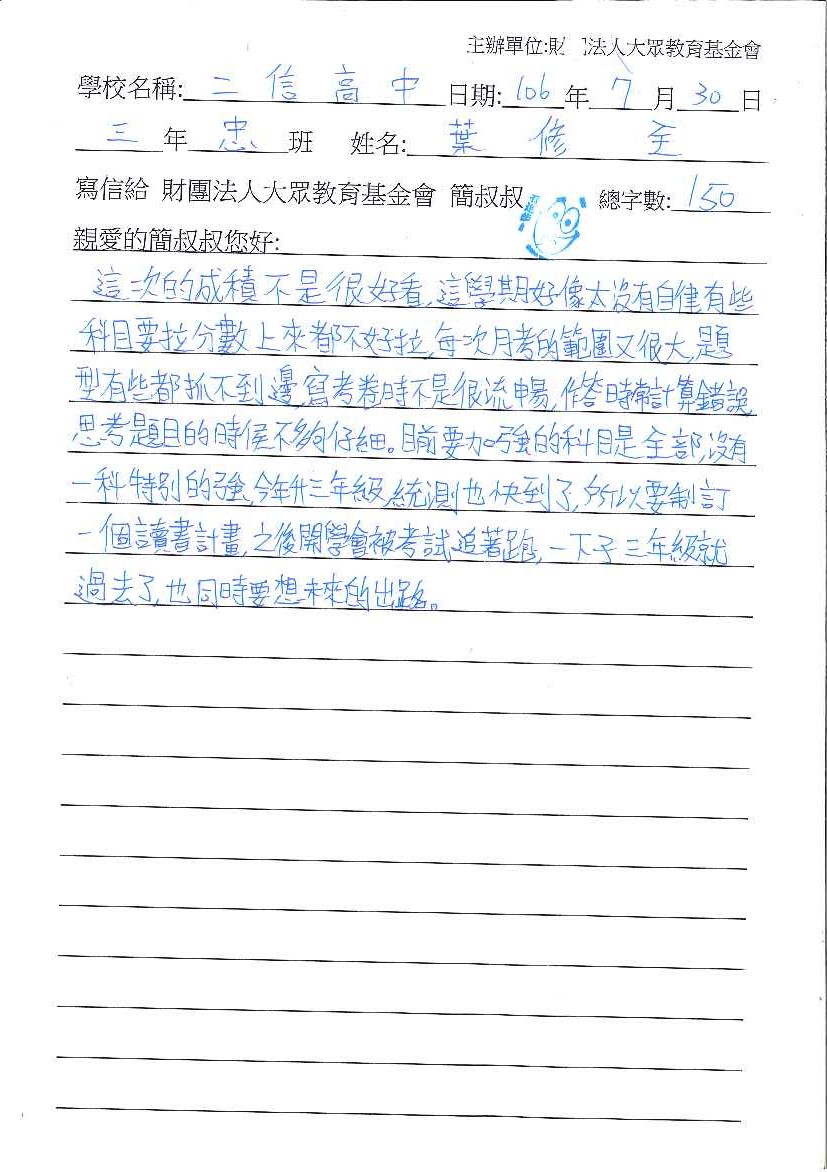 主辦單位:財 法人大眾教育基金會
學校名稱: 二信高中 日期: 106 年 7 月 30 日
三 年 忠 班 姓名: 葉修全
寫信給 財團法人大眾教育基金會 簡叔叔 總字數: 150
親愛的簡叔叔您好:
這次的成積不是很好看,這學期好像太沒有自律有些
科目要拉分數上來都不好拉,每次月考的範圍又很大,題
型有些都抓不到邊,寫考卷時不是很流暢,作答時常計算錯誤,
思考題目的時候不夠仔細。目前要加強的科目是全部,沒有
一科特別的強,今年升三年級,統測也快到了,所以要制訂
一個讀書計畫,之後開學會被考試追著跑,一下子三年級就
過去了,也同時要想未來的出路。